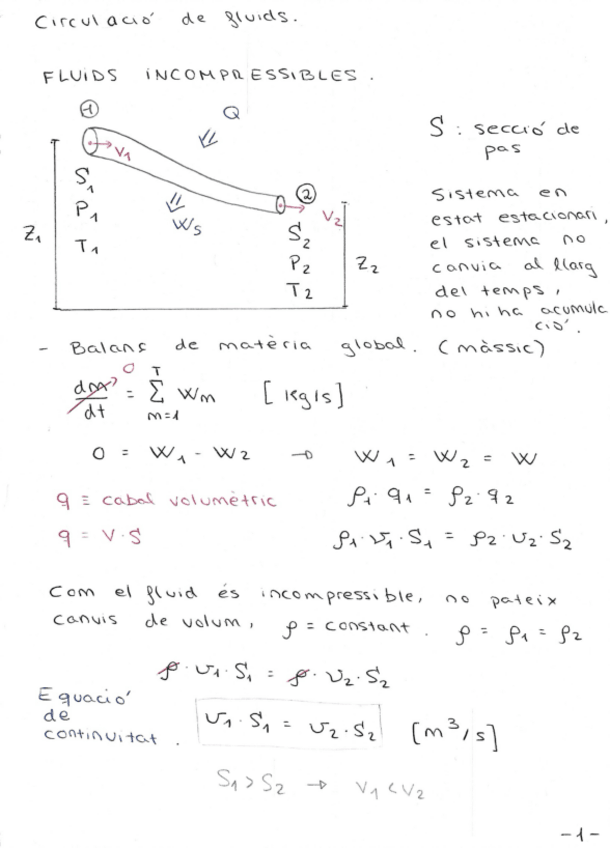 Circulació de fluids.
FLUIDS INCOMPRESSIBLES.
1
Q
V1
S1
P1
T1
Z1
Ws
2
V2
S2
P2
T2
Z2
S : secció de
pas
Sistema en
estat estacionari,
el sistema no
canvia al llarg
del temps,
no hi ha acumula
ció.
- Balanç de matèria global. (màssic)
dm/dt → 0 = Σ (m=1, T) Wm [kg/s]
0 = W1 - W2 → W1 = W2 = W
q ≡ cabal volumètric ρ1 · q1 = ρ2 · q2
q = V · S ρ1 · v1 · S1 = ρ2 · v2 · S2
Com el fluid és incompressible, no pateix
canvis de volum, ρ = constant. ρ = ρ1 = ρ2
ρ · v1 · S1 = ρ · v2 · S2
Equació
de
continuitat.
v1 · S1 = v2 · S2 [m³/s]
S1 > S2 → V1 < V2
-1-